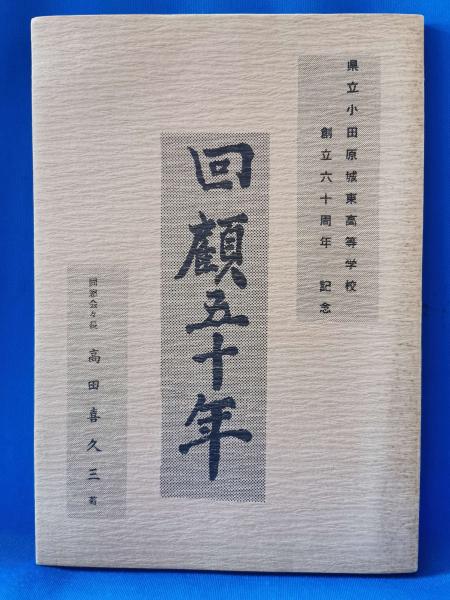 県立小田原城東高等学校
創立六十周年 記念
回顧五十年
同窓会々長 高田喜久三 著